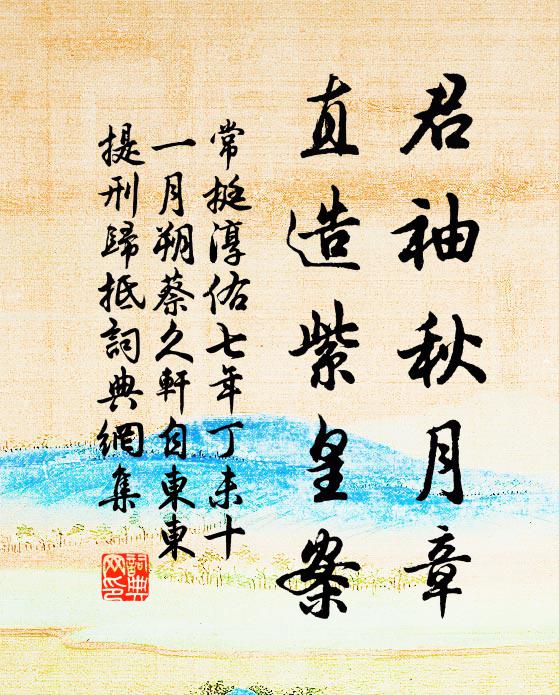 君袖秋月章
直造紫皇案
常挺淳佑七年丁未十
一月朔蔡久軒自東東
提刑歸抵詞典網集
詞典
网印